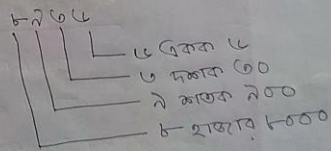 ৮৯৩৫
৫ একক ৫
৩ দশক ৩০
৯ শতক ৯০০
৮ হাজার ৮০০০